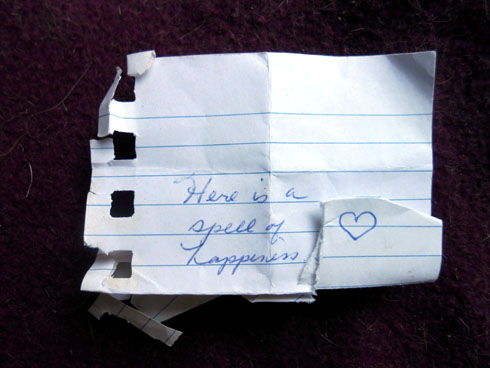 Here is a
spell of
happiness